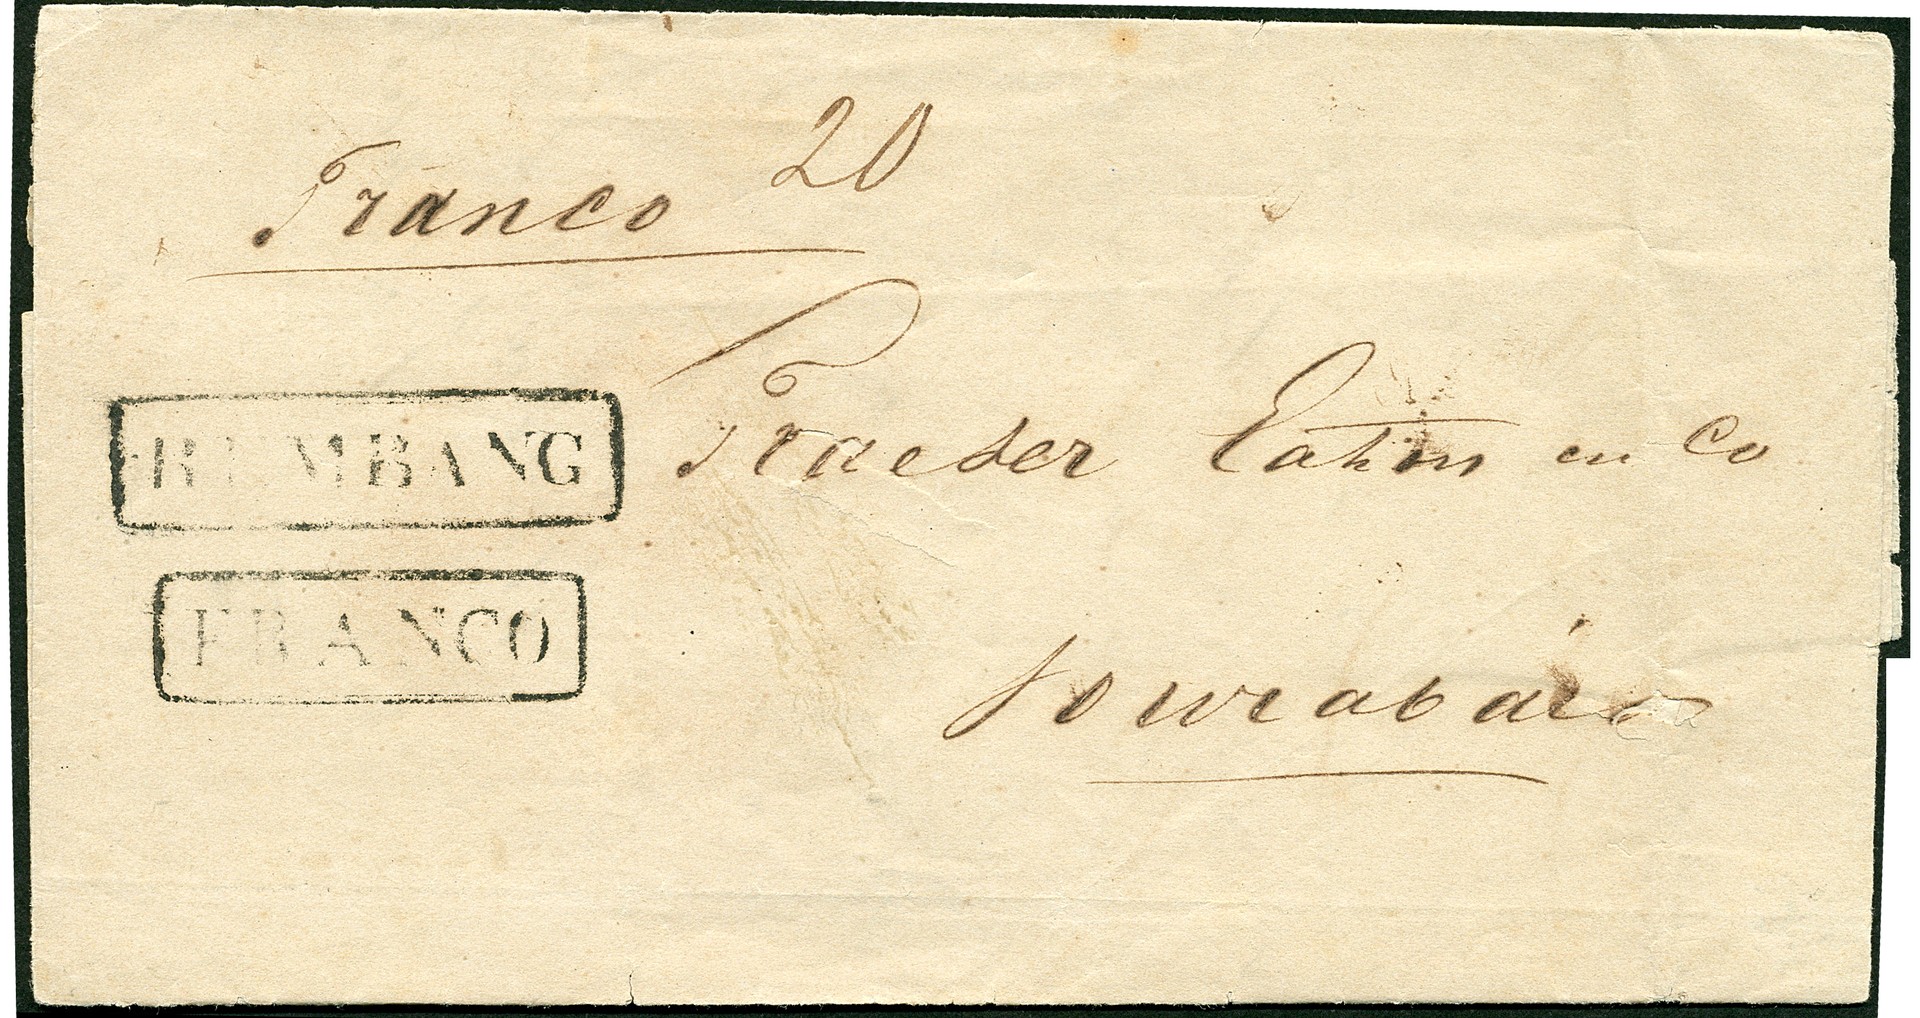 20
Franco
REMBANG
Fraeser Eaton en Co
FRANCO
Sourabaia